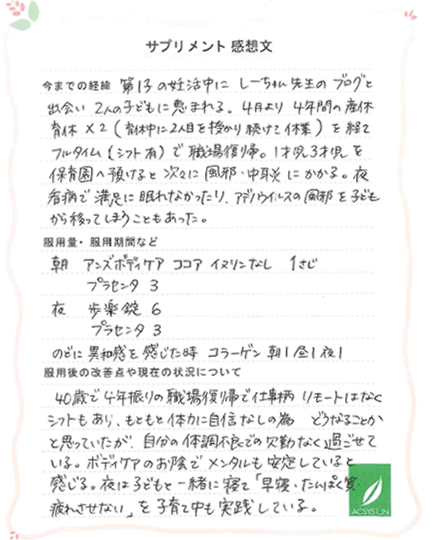 サプリメント 感想文
今までの経緯 第1子の妊活中に しーちゃん先生の ブログと
出会い 2人の子どもに恵まれる。4月より 4年間の産休
育休×2(育休中に2人目を授かり続けて休業)を経て
フルタイム(シフト有)で 職場復帰。1才児3才児を
保育園へ預けると 次々に 風邪・中耳炎 にかかる。夜
看病で 満足に 眠れなかったり、アデノウイルスの風邪を子ども
から移ってしまうこともあった。
服用量・服用期間など
朝 アンズボディケア ココア イヌリンなし 1さじ
プラセンタ 3
夜 歩楽錠 6
プラセンタ 3
のどに 異和感を 感じた時 コラーゲン 朝1昼1夜1
服用後の改善点や現在の状況について
40歳で 4年振りの 職場復帰で仕事柄 リモートはなく
シフトもあり、もともと体力に自信なしの為 どうなることか
と思っていたが、自分の体調不良での欠勤なく 過ごせて
いる。ボディケアのお陰で メンタルも 安定していると
感じる。夜は子どもと一緒に寝て「早寝・たんぱく質・
疲れさせない」を 子育て中も 実践している。
ACSYS UN